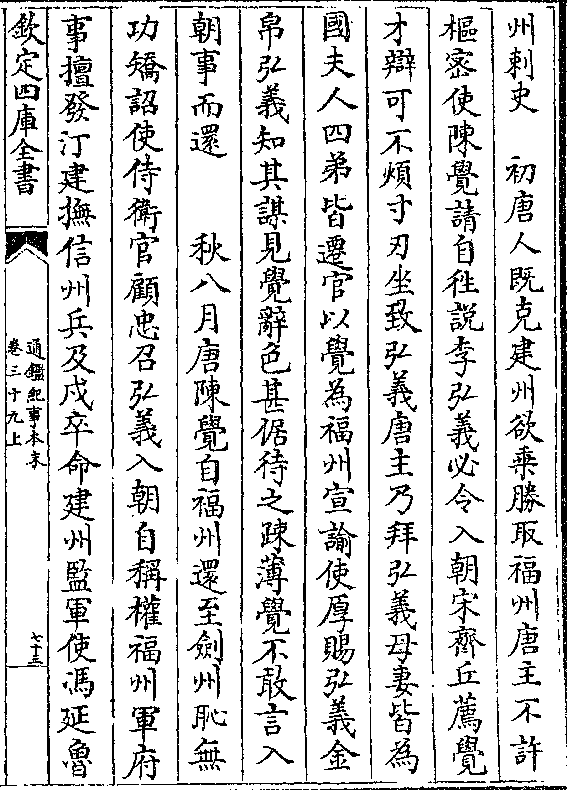 州刺史　初唐人既克建州欲乗勝取福州唐主不許
樞宻使陳覺請自徃説李弘義必令入朝宋齊丘薦覺
才辯可不煩寸刃坐致弘義唐主乃拜弘義母妻皆為
國夫人四弟皆遷官以覺為福州宣諭使厚賜弘義金
帛弘義知其謀見覺辭色甚倨待之疎薄覺不敢言入
朝事而還　　秋八月唐陳覺自福州還至劍州恥無
功矯詔使侍衛官顧忠召弘義入朝自稱權福州軍府
事擅發汀建撫信州兵及戍卒命建州監軍使馮延魯
欽定四庫全書
通鑑紀事本末
卷三十九上
七十三